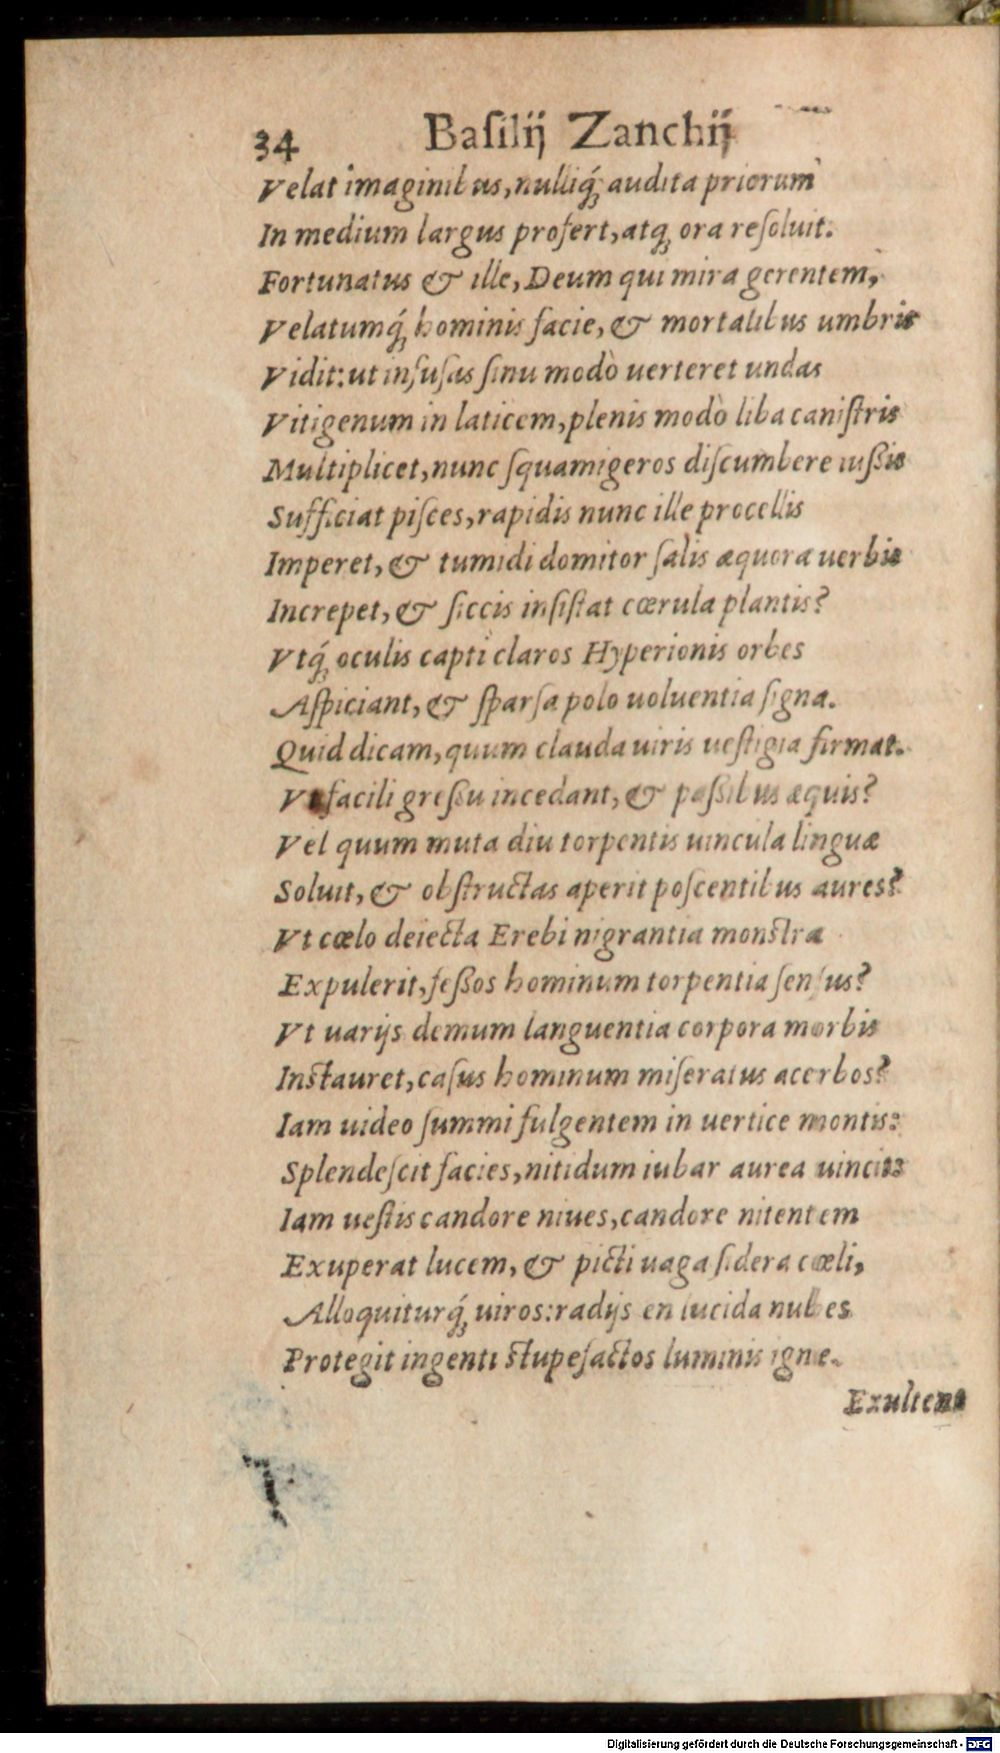 34 Baſilij Zanchij
Velat imaginibus, nulliq́; audita priorum
In medium largus profert, atq; ora reſoluit.
Fortunatus & ille, Deum qui mira gerentem,
Velatumq́; hominis facie, & mortalibus umbris
Vidit: ut infuſas ſinu modò uerteret undas
Vitigenum in laticem, plenis modò liba caniſtris
Multiplicet, nunc ſquamigeros diſcumbere iußis
Sufficiat piſces, rapidis nunc ille procellis
Imperet, & tumidi domitor ſalis æquora uerbis
Increpet, & ſiccis inſiſtat cœrula plantis?
Vtq́; oculis capti claros Hyperionis orbes
Aſpiciant, & ſparſa polo uoluentia ſigna.
Quid dicam, quum clauda uiris ueſtigia firmat.
Vt facili greßu incedant, & paßibus æquis?
Vel quum muta diu torpentis uincula linguæ
Soluit, & obſtructas aperit poſcentibus aures?
Vt cœlo deiecta Erebi nigrantia monſtra
Expulerit, feßos hominum torpentia ſenſus?
Vt uarijs demum languentia corpora morbis
Inſtauret, caſus hominum miſeratus acerbos?
Iam uideo ſummi fulgentem in uertice montis:
Splendeſcit facies, nitidum iubar aurea uincit:
Iam ueſtis candore niues, candore nitentem
Exuperat lucem, & picti uaga ſidera cœli,
Alloquiturq́; uiros: radijs en lucida nubes
Protegit ingenti ſtupefactos luminis igne.
Exultent
Digitalisierung gefördert durch die Deutsche Forschungsgemeinschaft - DFG